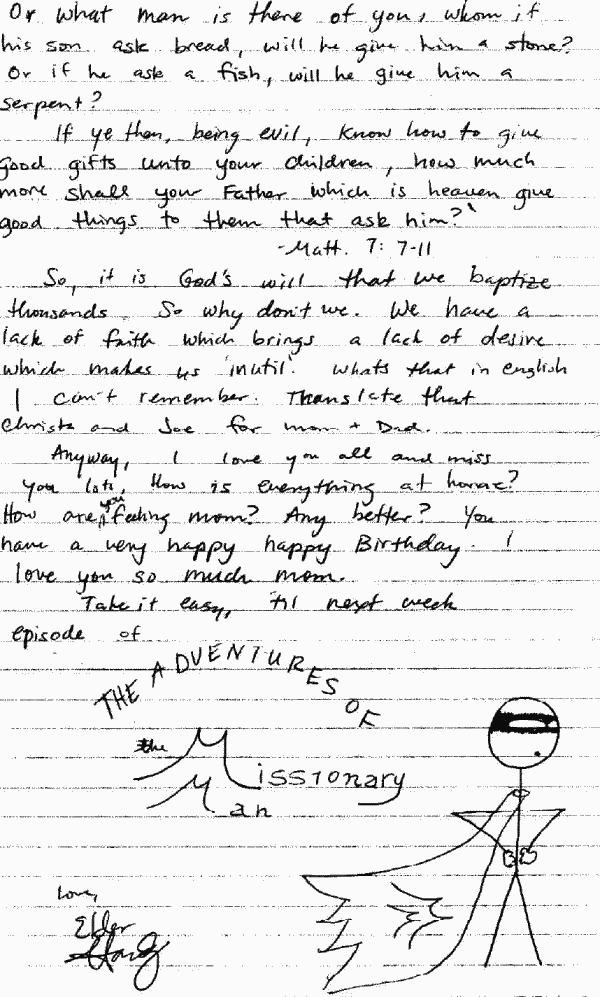 Or what man is there of you, whom if
his son ask bread, will he give him a stone?
Or if he ask a fish, will he give him a
serpent?
If ye then, being evil, know how to give
good gifts unto your children, how much
more shall your Father which is heaven give
good things to them that ask him?"
-Matt. 7: 7-11
So, it is God's will that we baptize
thousands. So why don't we. We have a
lack of faith which brings a lack of desire
which makes us "inutil". Whats that in english
I can't remember. Translate that
Christa and Joe for mom + Dad.
Anyway, I love you all and miss
you lots. How is everything at home?
How are you feeling mom? Any better? You
have a very happy happy Birthday. I
love you so much mom.
Take it easy, 'til next week
episode of
THE ADVENTURES OF
the Missionary
Man
Love,
Elder